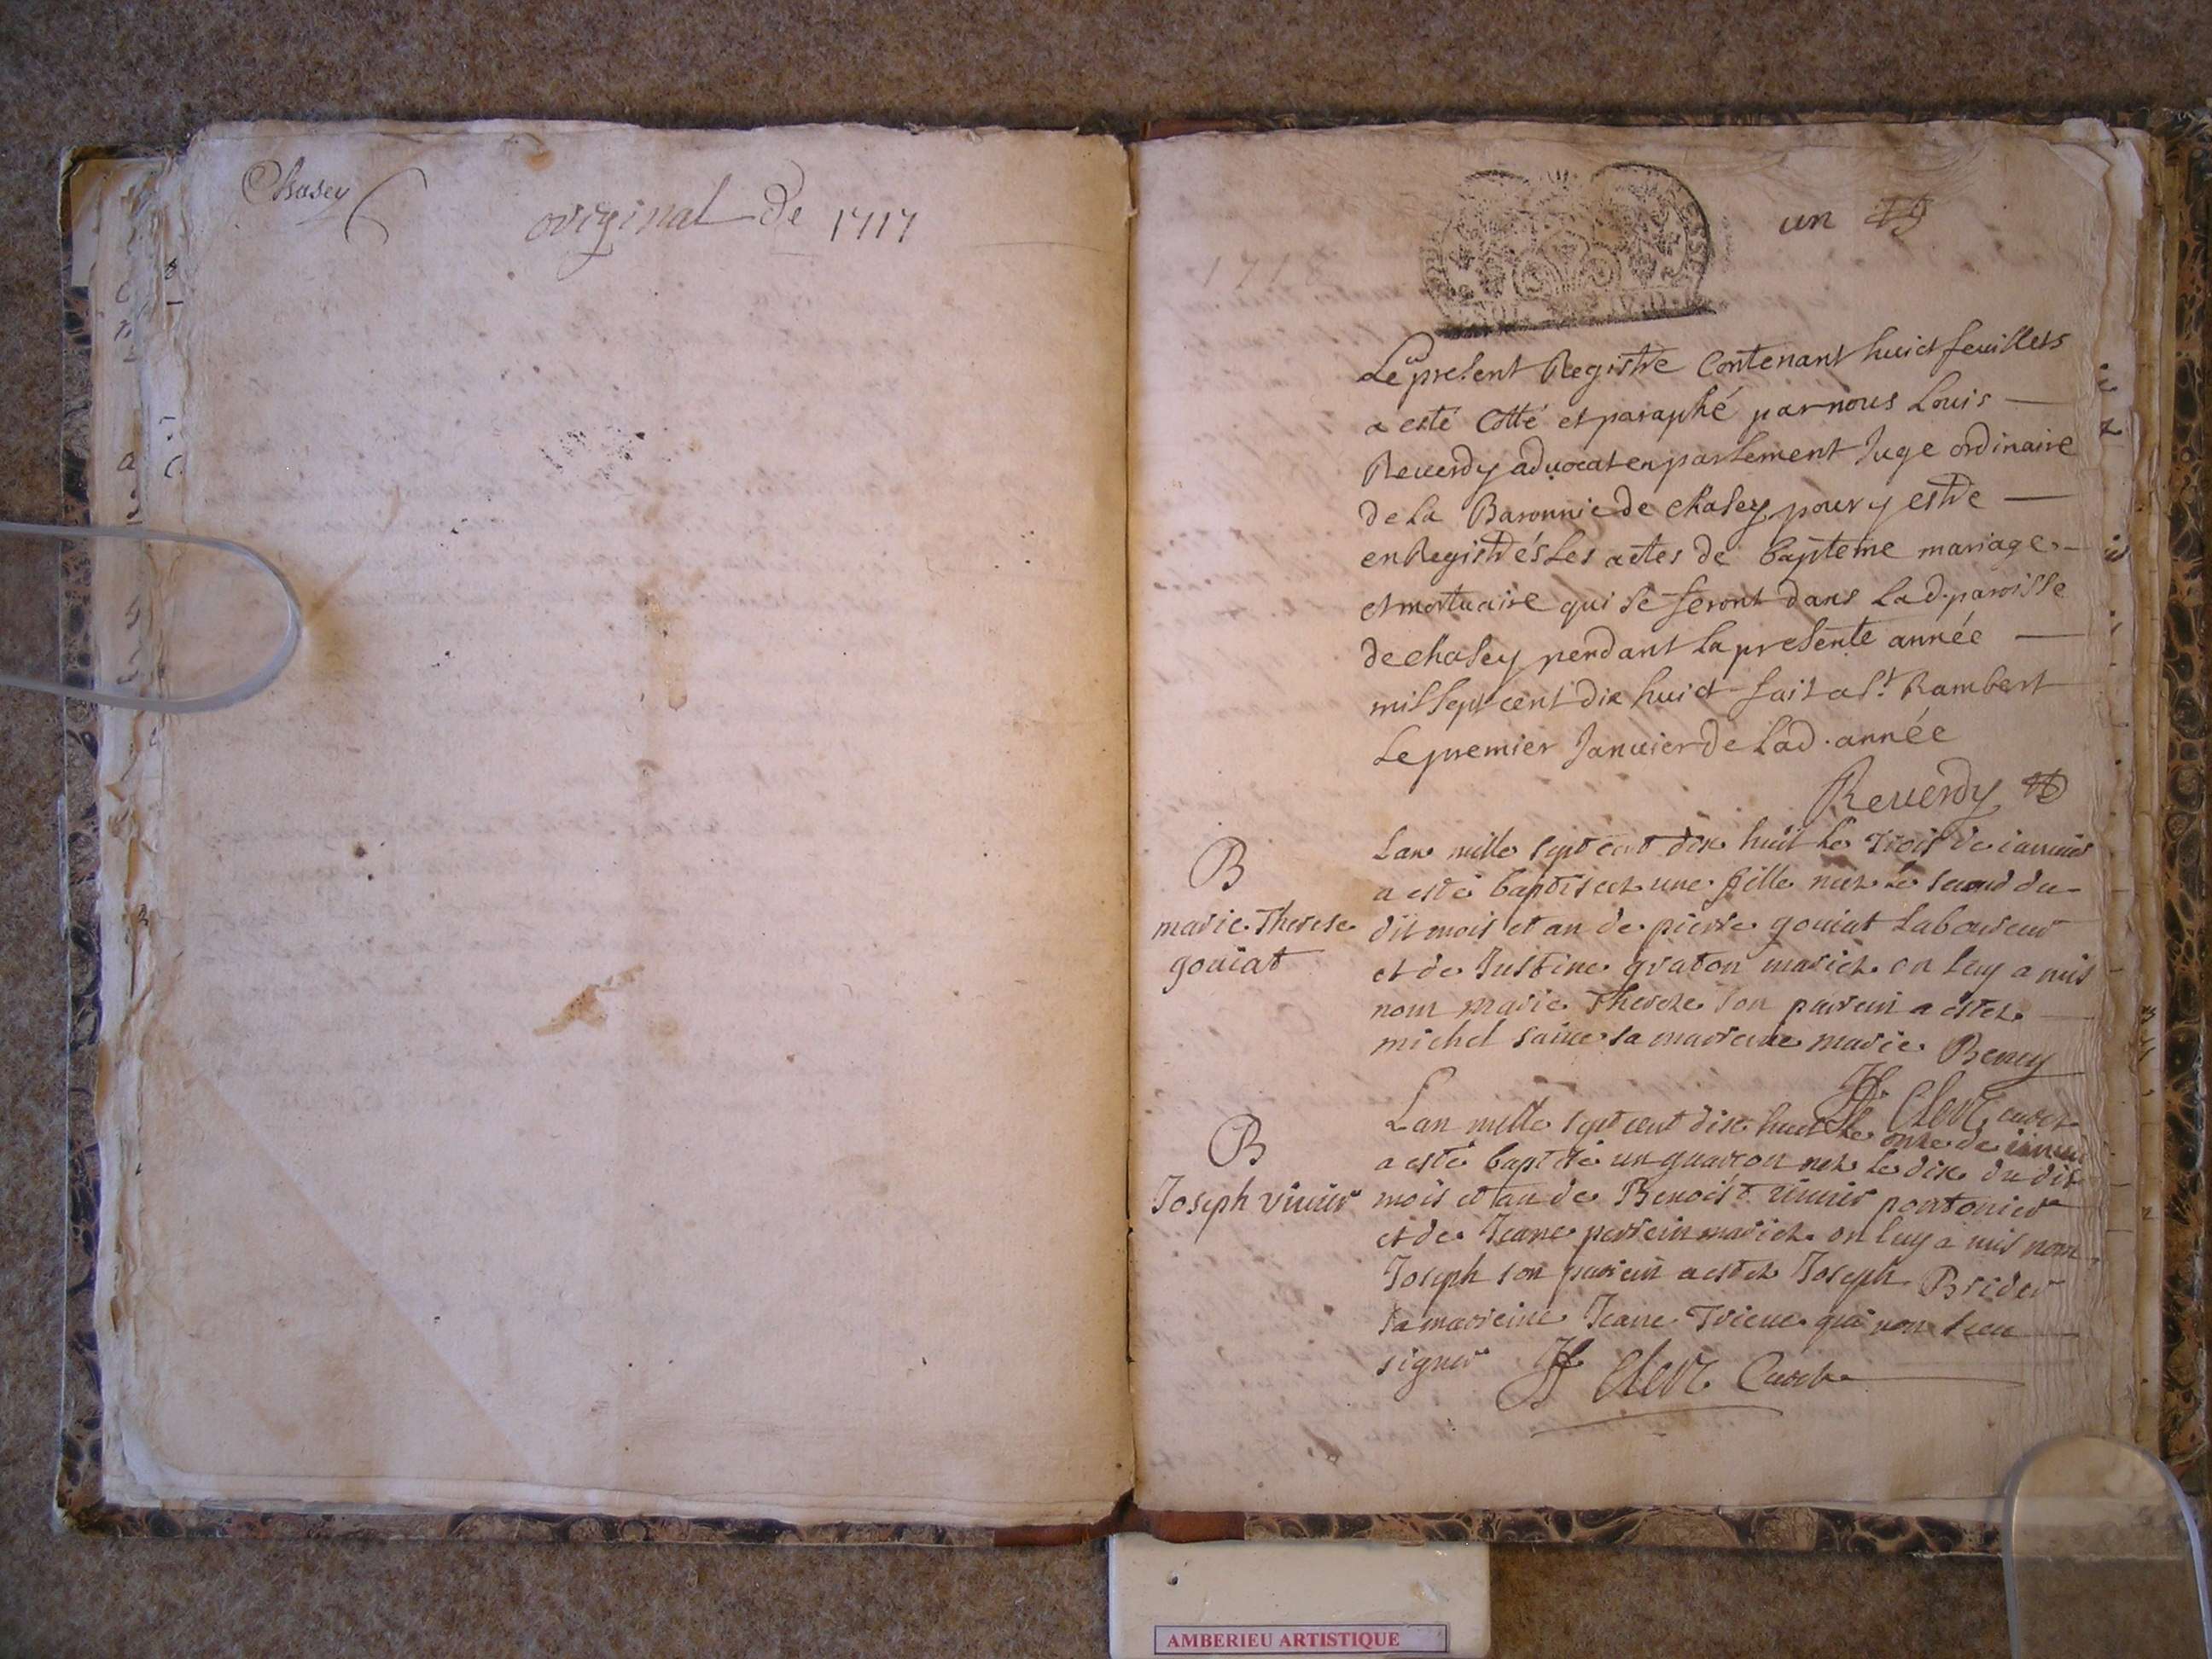 Chasey
original de 1717
un
Le present Registre Contenant huict feuillets
a esté Cotté et paraphé par nous Louis
Reuerdy aduocat en parlement Juge ordinaire
de la Baronnie de chasey pour y estre
en Registrés Les actes de bapteme mariage
et mortuaire qui se feront dans lad. paroisse
de chasey pendant la presente année
mil sept cent dix huict fait a St. Rambert
Le premier Januier de Lad. année
Reuerdy
B
marie Therese
gouiat
Lan mille sept cent dix huit le trois de ianuier
a esté baptiseez une fille neez le second du
dit mois et an de pierre gouiat Laboureur
et de Justine graton mariez on luy a mis
nom marie Thereze son parrein a estez
michel sa marreine marie
Clerc curez
B
Joseph viuier
Lan mille sept cent dix huit le onze de
a esté baptisé un guarcon nez le dix du dit
mois et an de Benoist viuier pontonier
et de Jeane perrein mariez on luy a mis nom
Joseph son parrein a estez Joseph Brider
sa marreine Jeane qui non sceu
signer Clerc Curez
AMBERIEU ARTISTIQUE